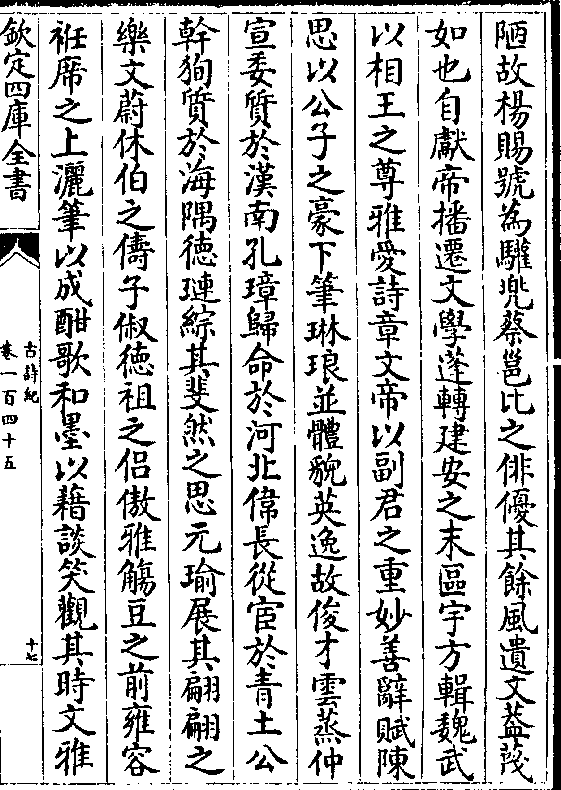 陋故楊賜號為驩兠蔡邕比之俳優其餘風遺文葢蔑
如也自獻帝播遷文學蓬轉建安之末區宇方輯魏武
以相王之尊雅愛詩章文帝以副君之重妙善辭賦陳
思以公子之豪下筆琳琅並體貌英逸故俊才雲蒸仲
宣委質於漢南孔璋歸命於河北偉長從宦於青土公
幹狥質於海隅徳璉綜其斐然之思元瑜展其翩翩之
樂文蔚休伯之儔子俶徳祖之侣傲雅觴豆之前雍容
袵席之上灑筆以成酣歌和墨以藉談笑觀其時文雅
欽定四庫全書
古詩紀
卷一百四十五
十七